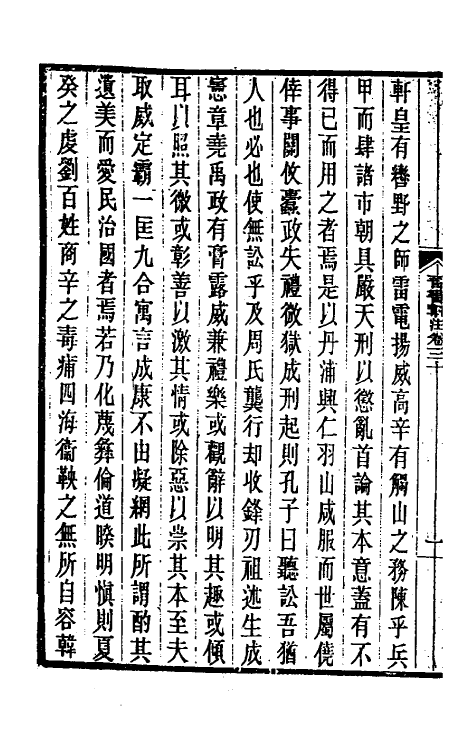 晉書斠注卷三十
軒皇有轡野之師雷電揚威高辛有觸山之務陳乎兵
甲而肆諸市朝具嚴天刑以懲亂首論其本意蓋有不
得已而用之者焉是以丹浦興仁羽山咸服而世屬僥
倖事關攸蠹政失禮微獄成刑起則孔子曰聽訟吾猶
人也必也使無訟乎及周氏龔行却收鋒刃祖述生成
憲章堯禹政有膏露威兼禮樂或觀辭以明其趣或傾
耳以照其微或彰善以激其情或除惡以崇其本至夫
取威定霸一匡九合寓言成康不由凝網此所謂酌其
遺美而愛民治國者焉若乃化蔑彝倫道睽明慎則夏
癸之虔劉百姓商辛之毒痡四海衞鞅之無所自容韓